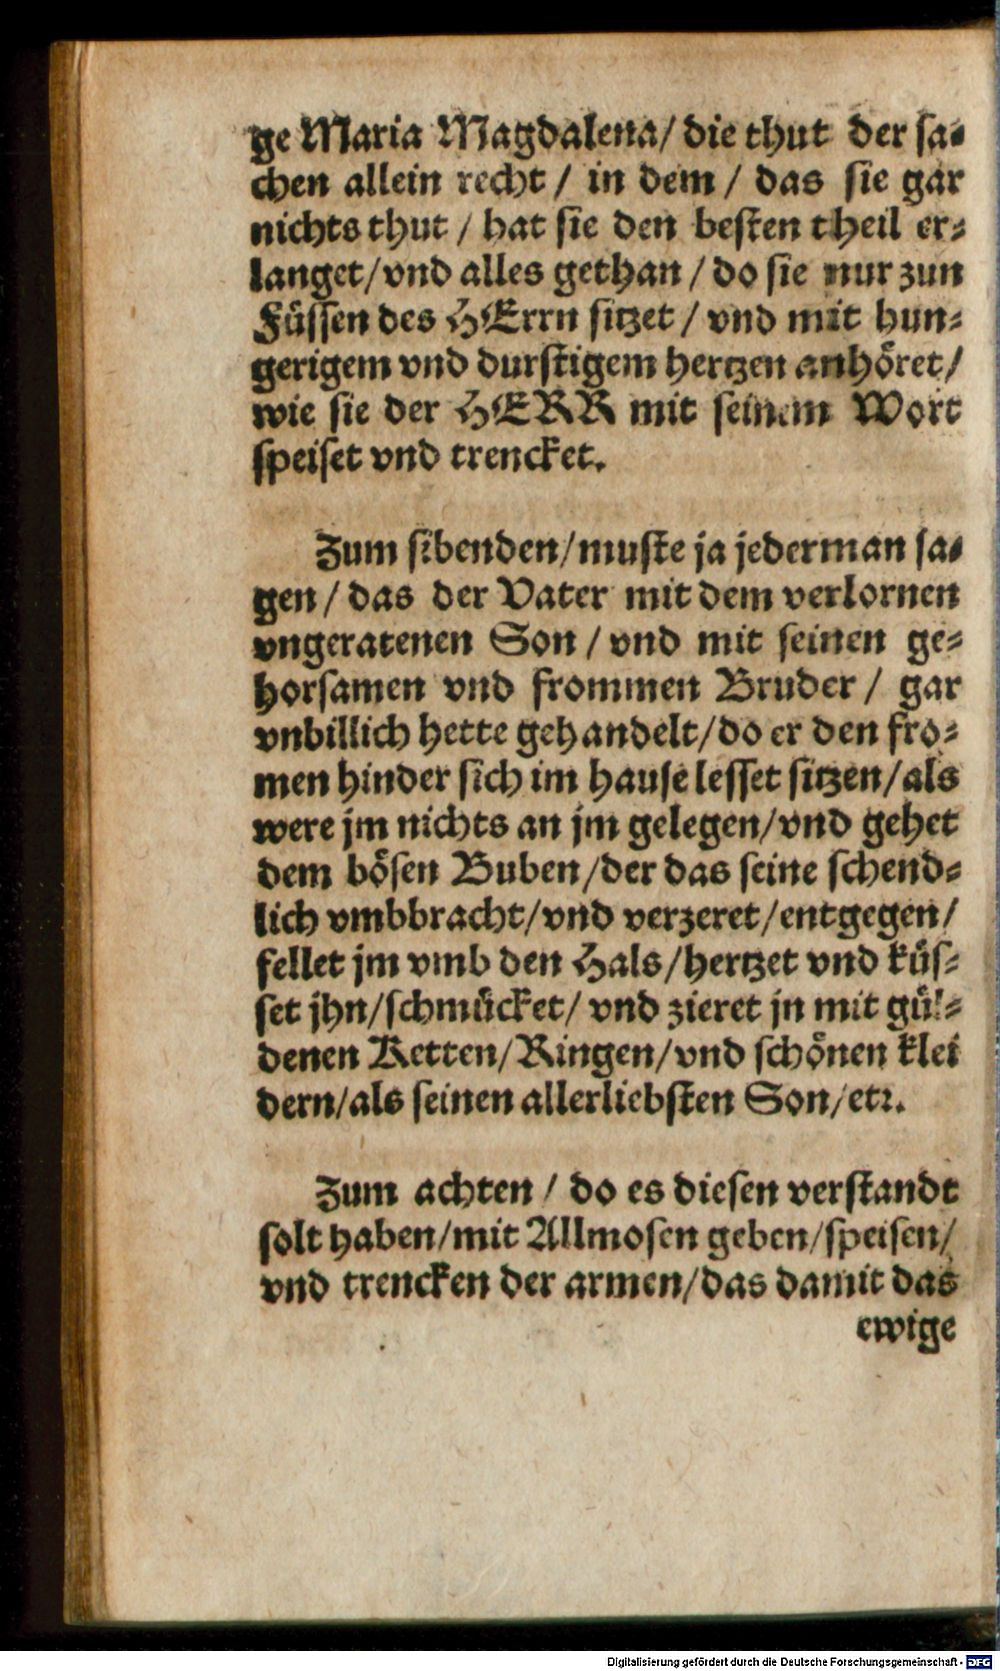 ge Maria Magdalena/ die thut der sa⸗
chen allein recht / in dem / das sie gar
nichts thut / hat sie den besten theil er⸗
langet/vnd alles gethan / do sie nur zun
Füssen des HErrn sitzet / vnd mit hun⸗
gerigem vnd durstigem hertzen anhöret/
wie sie der HERR mit seinem Wort
speiset vnd trencket.
Zum sibenden/muste ja jederman sa⸗
gen / das der Vater mit dem verlornen
vngeratenen Son / vnd mit seinen ge⸗
horsamen vnd frommen Bruder / gar
vnbillich hette gehandelt/do er den fro⸗
men hinder sich im hause lesset sitzen/als
were jm nichts an jm gelegen/vnd gehet
dem bösen Buben/der das seine schend⸗
lich vmbbracht/vnd verzeret/entgegen/
fellet jm vmb den Hals/hertzet vnd küs⸗
set jhn/schmücket/ vnd zieret jn mit gül⸗
denen Ketten/Ringen/vnd schönen klei
dern/als seinen allerliebsten Son/etc.
Zum achten / do es diesen verstandt
solt haben/mit Allmosen geben/speisen/
vnd trencken der armen/das damit das
ewige
Digitalisierung gefördert durch die Deutsche Forschungsgemeinschaft - DFG